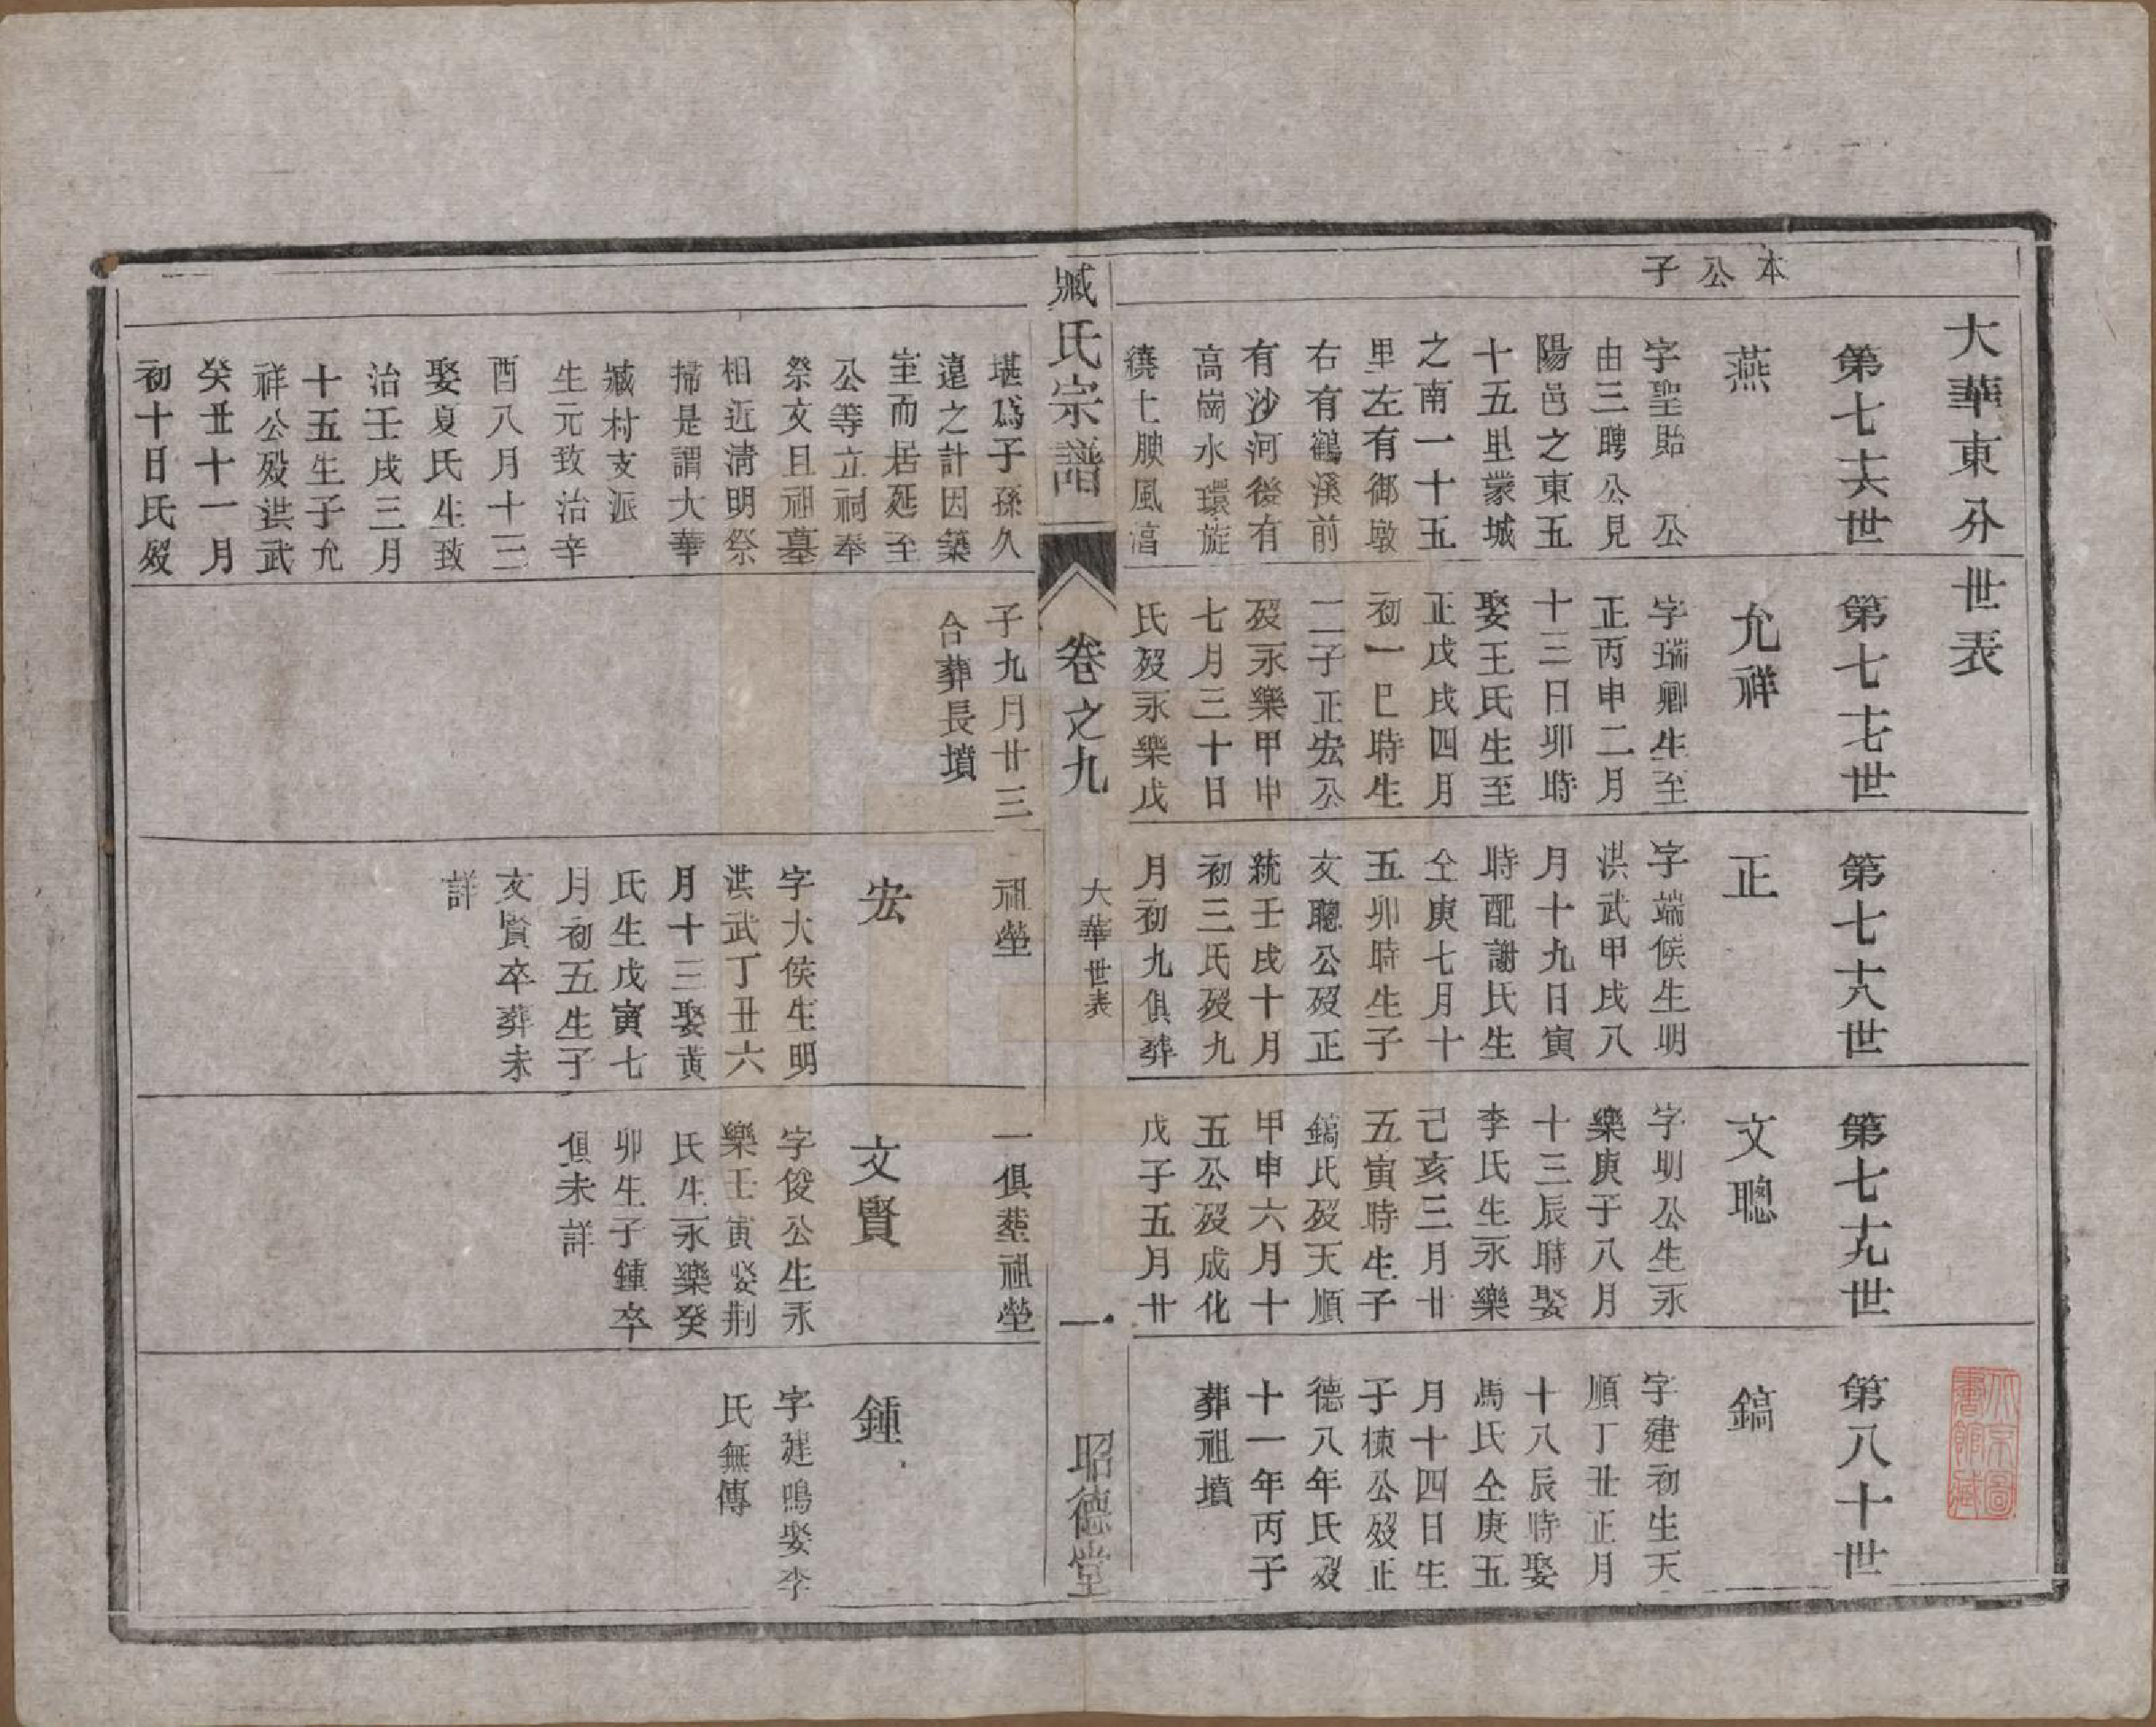 大華東分世表
本公子
第七十六世
燕
字聖貽　公
由三聘公見
陽邑之東五
十五里蒙城
之南一十五
里左有御墩
右有鶴溪前
有沙河後有
高崗水環旋
繞土腴風淳
第七十七世
允祥
字瑞卿生至
正丙申二月
十三日卯時
娶王氏生至
正戊戌四月
初一巳時生
二子正宏公
歿永樂甲申
七月三十日
氏歿永樂戊
第七十八世
正
字端侯生明
洪武甲戌八
月十九日寅
時配謝氏生
仝庚七月十
五卯時生子
文聰公歿正
統壬戌十月
初三氏歿九
月初九俱葬
第七十九世
文聰
字明公生永
樂庚子八月
十三辰時娶
李氏生永樂
己亥三月廿
五寅時生子
鎬氏歿天順
甲申六月十
五公歿成化
戊子五月廿
第八十世
鎬
字建初生天
順丁丑正月
十八辰時娶
馬氏仝庚五
月十四日生
子棟公歿正
德八年氏歿
十一年丙子
葬祖墳
臧氏宗譜
卷之九
大華世表
一
昭德堂
堪爲子孫久
遠之計因築
室而居延至
公等立祠奉
祭攴且祖墓
相近清明祭
掃是謂大華
臧村支派
生元致治辛
酉八月十三
娶夏氏生致
治壬戌三月
十五生子允
祥公歿洪武
癸丑十一月
初十日氏歿
子九月廿三
合葬長墳
祖塋
宏
字大侯生明
洪武丁丑六
月十三娶黃
氏生戊寅七
月初五生子
文賢卒葬未
詳
一俱葬祖塋
文賢
字俊公生永
樂壬寅娶荆
氏生永樂癸
卯生子鍾卒
俱未詳
鍾
字建鳴娶李
氏無傳